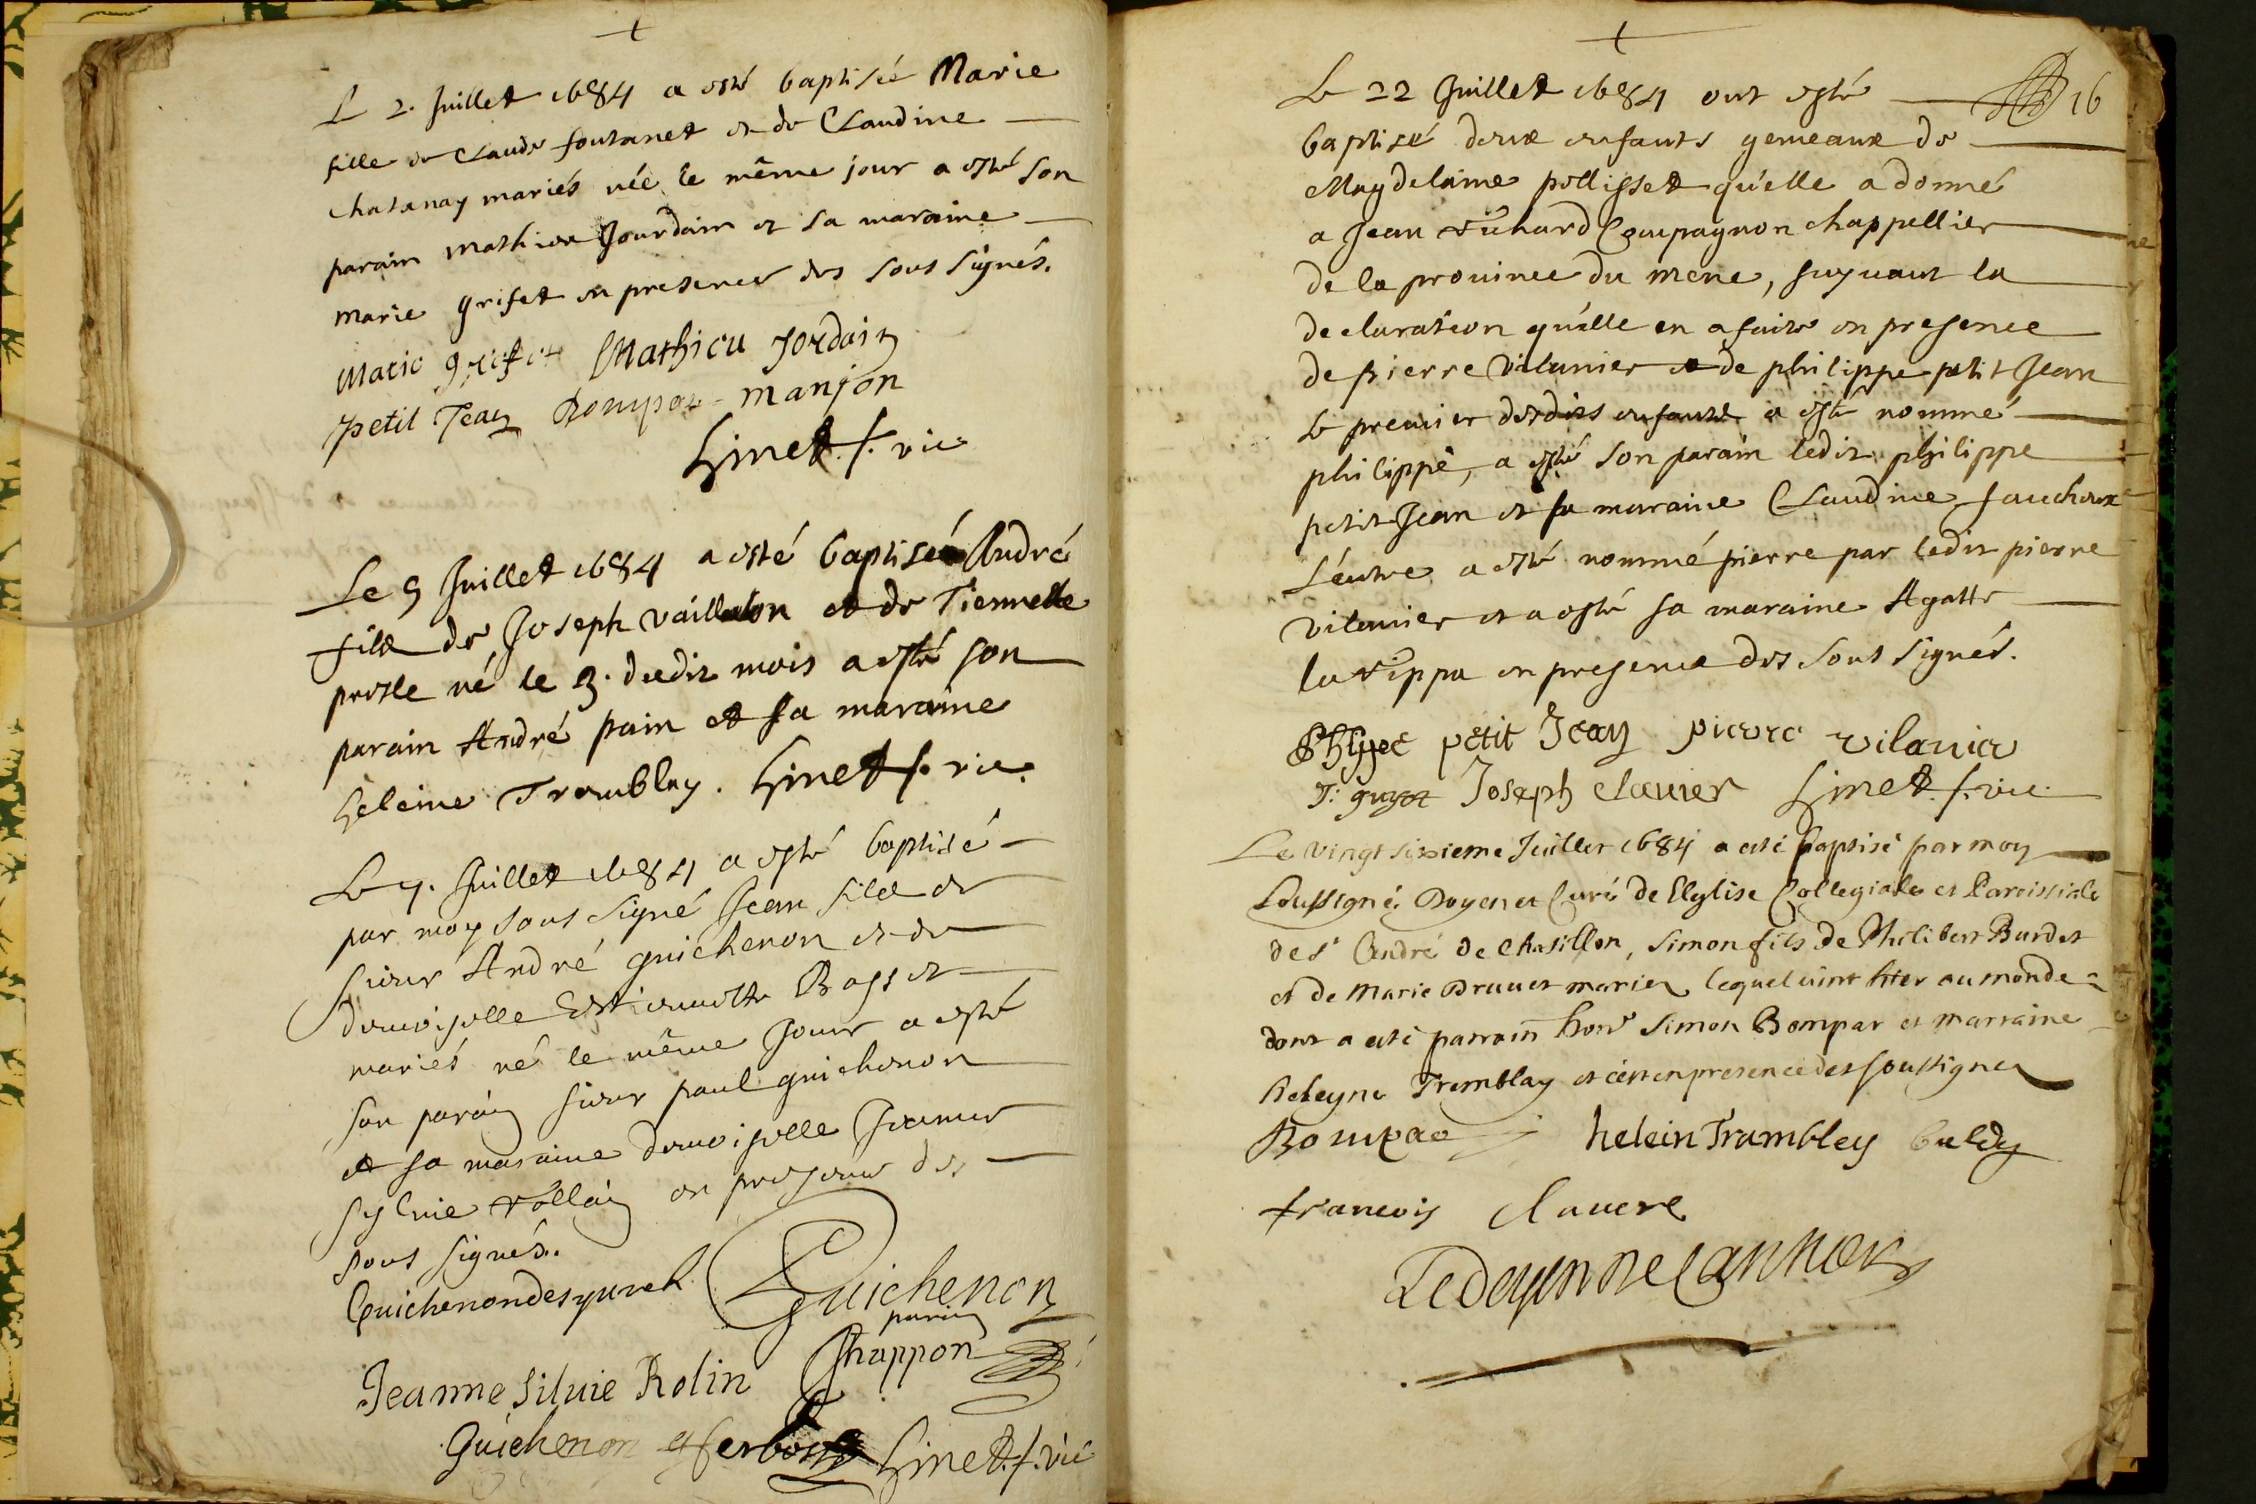 L 2. Juillet 1684 a esté baptisée Marie
fille de Claude fontanet et de Claudine
chatanay mariés née le même jour a esté son
parain mathieu Jourdain et sa maraine
marie grifet en presence des sous signés.
Marie grifet Mathieu Jordain
petit Jean Bompar manjon
hinet f. vic
Le 5 Juillet 1684 a esté baptisé André
fils de Joseph vaillalon et de Tiennette
proste né le 3. dudit mois a esté son
parain André pain et sa maraine
heleine Tremblay. hinet f. vic.
Le 7. Juillet 1684 a esté baptisé
par moy sous signé Jean fils de
sieur André guichenon et de
demoiselle Estiennette Bosset
mariés né le même jour a esté
son parain sieur paul guichenon
et sa maraine demoiselle Jeanne
sylvie rollin en presence des
sous signés.
Guichenon
parin
Jeanne Siluie Rolin Chappon
Guichenon hinet. f. vic
16
Le 22 Juillet 1684 ont esté
baptisé deux enfants gemeaux de
Magdelaine pollisset qu'elle a donné
a Jean richard Compagnon chappellier
de la prouince du mene, suyuant la
declaration qu'elle en a faite en presence
de pierre vilanier et de philippe petit Jean
Le premier desdits enfants a esté nommé
philippe, a esté son parain ledit philippe
petit Jean et sa maraine Claudine fauchoux
L'autre a esté nommé pierre par ledit pierre
vilanier et a esté sa maraine Agatte
la rippa en presence des sous signés.
petit Jean pierre vilanier
J. guyot Joseph clauier hinet. f. vic.
Le vingt sixieme Juillet 1684 a esté baptisé par moy
soussigné Doyen et Curé de l'Eglise Collegiale et Paroissiale
de st André de chatillon, simon fils de Philibert Burdet
et de Marie Druuet mariez lequel vint hier au monde
dont a esté parrain hon. simon Bompar et marraine
heleyne Tremblay et c'est en presence des soussignez
Bompar helein Trambley
francois clauere